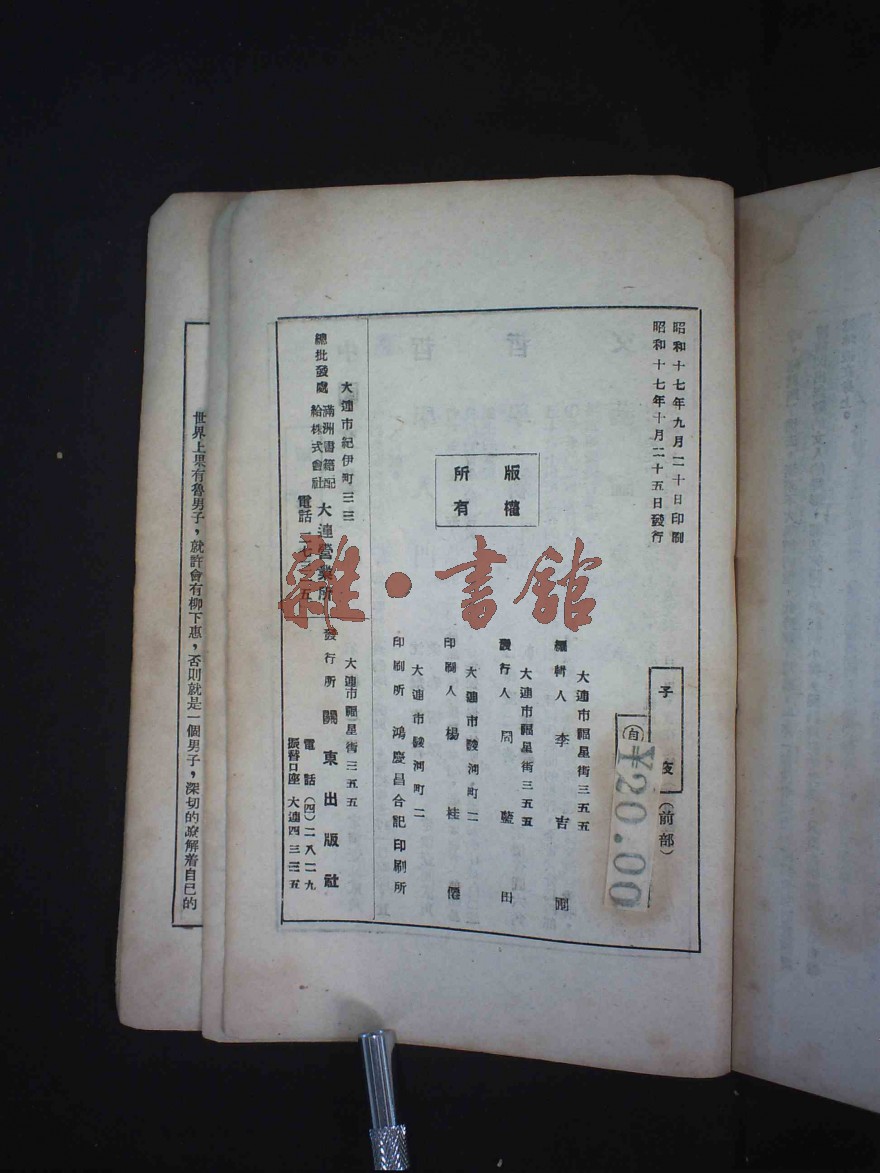 昭和十七年九月二十日印刷
昭和十七年十月二十五日發行
版權
所有
子夜
(前部)
自
¥20.00
大連市福星街三五五
編輯人 李吉
大連市福星街三五五
發行人 周藍田
大連市駿河町二
印刷人 楊桂僊
大連市駿河町二
印刷所 鴻慶昌合記印刷所
大連市福星街三五五
發行所 關東出版社
電話(四)二八二九
振替口座 大連四三三五
大連市紀伊町三三
總批發處 滿洲書籍配給株式會社 大連營業所
電話二七 五
雜·書館
世界上果有魯男子,就許會有柳下惠,否則就是一個男子,深切的諒解着自已的